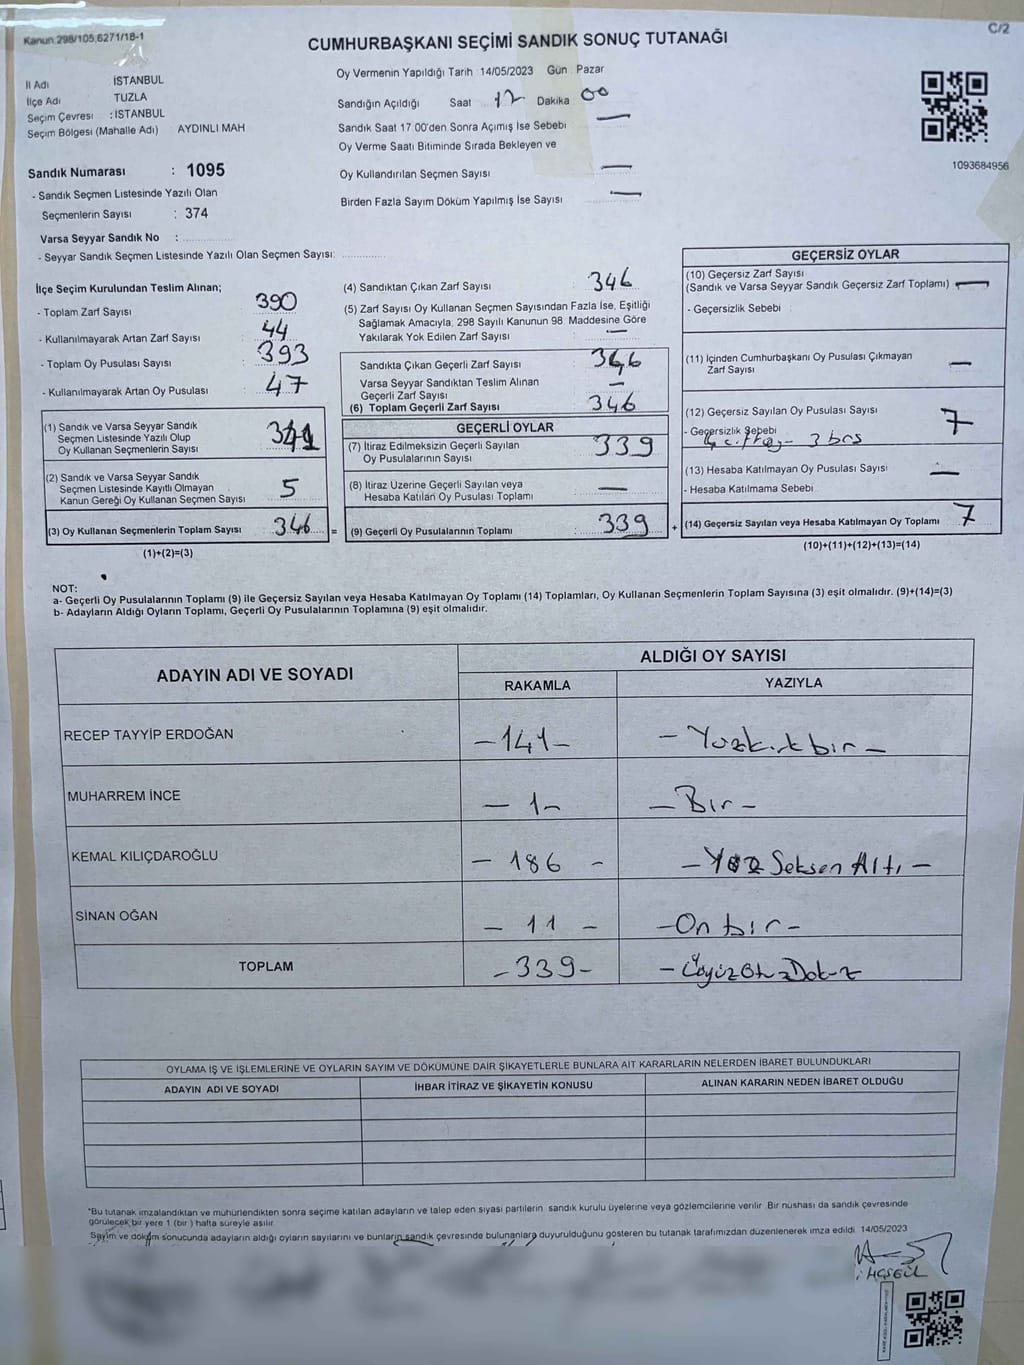 Kanun 298/105,6271/18-1
C/2
CUMHURBAŞKANI SEÇİMİ SANDIK SONUÇ TUTANAĞI
İl Adı İSTANBUL
İlçe Adı TUZLA
Seçim Çevresi : İSTANBUL
Seçim Bölgesi (Mahalle Adı) AYDINLI MAH
Oy Vermenin Yapıldığı Tarih 14/05/2023 Gün Pazar
Sandığın Açıldığı Saat 17 Dakika 00
Sandık Saat 17.00'den Sonra Açımış İse Sebebi —
Oy Verme Saati Bitiminde Sırada Bekleyen ve
Oy Kullandırılan Seçmen Sayısı —
Birden Fazla Sayım Döküm Yapılmış İse Sayısı —
1093684956
Sandık Numarası : 1095
- Sandık Seçmen Listesinde Yazılı Olan
Seçmenlerin Sayısı : 374
Varsa Seyyar Sandık No :
- Seyyar Sandık Seçmen Listesinde Yazılı Olan Seçmen Sayısı:
İlçe Seçim Kurulundan Teslim Alınan;
- Toplam Zarf Sayısı : 390
- Kullanılmayarak Artan Zarf Sayısı : 44
- Toplam Oy Pusulası Sayısı : 393
- Kullanılmayarak Artan Oy Pusulası : 47
(1) Sandık ve Varsa Seyyar Sandık
Seçmen Listesinde Yazılı Olup
Oy Kullanan Seçmenlerin Sayısı 341
(2) Sandık ve Varsa Seyyar Sandık
Seçmen Listesinde Kayıtlı Olmayan
Kanun Gereği Oy Kullanan Seçmen Sayısı 5
(3) Oy Kullanan Seçmenlerin Toplam Sayısı 346 =
(1)+(2)=(3)
(4) Sandıktan Çıkan Zarf Sayısı 346
(5) Zarf Sayısı Oy Kullanan Seçmen Sayısından Fazla İse, Eşitliği
Sağlamak Amacıyla, 298 Sayılı Kanunun 98. Maddesine Göre
Yakılarak Yok Edilen Zarf Sayısı : —
Sandıkta Çıkan Geçerli Zarf Sayısı 346
Varsa Seyyar Sandıktan Teslim Alınan
Geçerli Zarf Sayısı —
(6) Toplam Geçerli Zarf Sayısı 346
GEÇERLİ OYLAR
(7) İtiraz Edilmeksizin Geçerli Sayılan
Oy Pusulalarının Sayısı : 339
(8) İtiraz Üzerine Geçerli Sayılan veya
Hesaba Katılan Oy Pusulası Toplamı : —
(9) Geçerli Oy Pusulalarının Toplamı : 339 +
GEÇERSİZ OYLAR
(10) Geçersiz Zarf Sayısı
(Sandık ve Varsa Seyyar Sandık Geçersiz Zarf Toplamı) —
- Geçersizlik Sebebi
(11) İçinden Cumhurbaşkanı Oy Pusulası Çıkmayan
Zarf Sayısı —
(12) Geçersiz Sayılan Oy Pusulası Sayısı 7
- Geçersizlik Sebebi
(13) Hesaba Katılmayan Oy Pusulası Sayısı —
- Hesaba Katılmama Sebebi
(14) Geçersiz Sayılan veya Hesaba Katılmayan Oy Toplamı 7
(10)+(11)+(12)+(13)=(14)
NOT:
a- Geçerli Oy Pusulalarının Toplamı (9) ile Geçersiz Sayılan veya Hesaba Katılmayan Oy Toplamı (14) Toplamları, Oy Kullanan Seçmenlerin Toplam Sayısına (3) eşit olmalıdır. (9)+(14)=(3)
b- Adayların Aldığı Oyların Toplamı, Geçerli Oy Pusulalarının Toplamına (9) eşit olmalıdır.
ADAYIN ADI VE SOYADI
ALDIĞI OY SAYISI
RAKAMLA YAZIYLA
RECEP TAYYİP ERDOĞAN –141– – Yüzkırkbir –
MUHARREM İNCE – 1– – Bir –
KEMAL KILIÇDAROĞLU – 186 – – Yüz Seksen Altı –
SİNAN OĞAN – 11 – –On bir–
TOPLAM –339– –ÜçyüzOtuzDokuz
OYLAMA İŞ VE İŞLEMLERİNE VE OYLARIN SAYIM VE DÖKÜMÜNE DAİR ŞİKAYETLERLE BUNLARA AİT KARARLARIN NELERDEN İBARET BULUNDUKLARI
ADAYIN ADI VE SOYADI İHBAR İTİRAZ VE ŞİKAYETİN KONUSU ALINAN KARARIN NEDEN İBARET OLDUĞU
"Bu tutanak imzalandıktan ve mühürlendikten sonra seçime katılan adayların ve talep eden siyasi partilerin sandık kurulu üyelerine veya gözlemcilerine verilir. Bir nushası da sandık çevresinde
görülecek bir yere 1 (bir) hafta süreyle asılır.
Sayım ve döküm sonucunda adayların aldığı oyların sayılarını ve bunların sandık çevresinde bulunanlara duyurulduğunu gösteren bu tutanak tarafımızdan düzenlenerek imza edildi. 14/05/2023